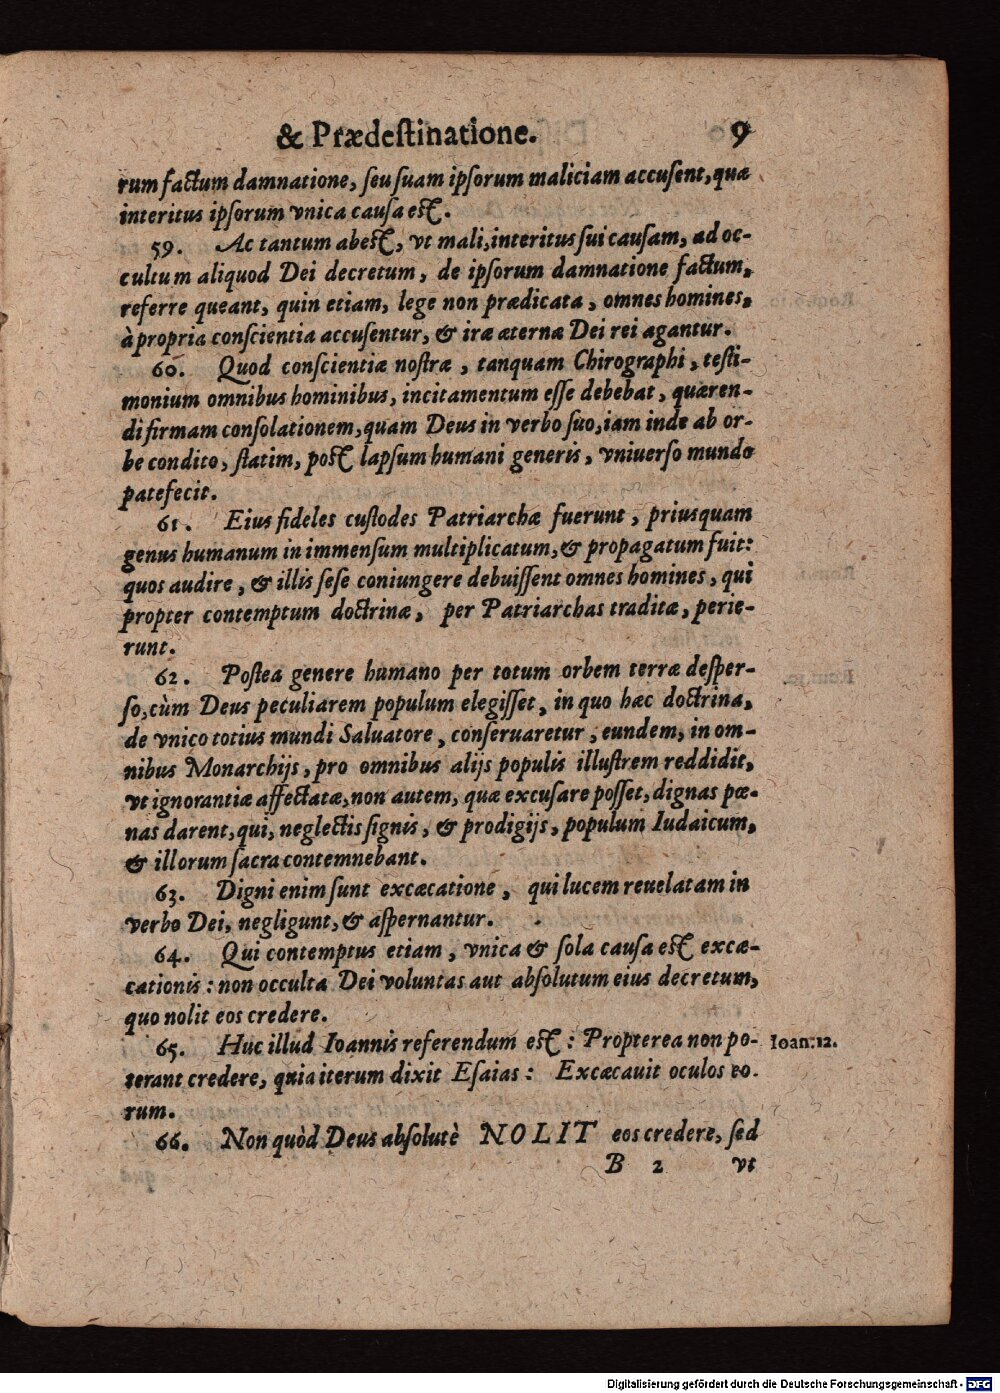 & Prædeſtinatione. 9
rum factum damnatione, ſeu ſuam ipſorum maliciam accuſent, quæ
interitus ipſorum vnica cauſa eſt.
59. Ac tantum abeſt, vt mali, interitus ſui cauſam, ad oc-
cultum aliquod Dei decretum, de ipſorum damnatione factum,
referre queant, quin etiam, lege non prædicata, omnes homines,
à propria conſcientia accuſentur, & iræ æternæ Dei rei agantur.
60. Quod conſcientiæ noſtræ, tanquam Chirographi, teſti-
monium omnibus hominibus, incitamentum eſſe debebat, quæren-
di firmam conſolationem, quam Deus in verbo ſuo, iam inde ab or-
be condito, ſtatim, poſt lapſum humani generis, vniuerſo mundo
patefecit.
61. Eius fideles cuſtodes Patriarchæ fuerunt, priusquam
genus humanum in immenſum multiplicatum, & propagatum fuit:
quos audire, & illis ſeſe coniungere debuiſſent omnes homines, qui
propter contemptum doctrinæ, per Patriarchas traditæ, perie-
runt.
62. Poſtea genere humano per totum orbem terræ deſper-
ſo, cùm Deus peculiarem populum elegiſſet, in quo hæc doctrina,
de vnico totius mundi Saluatore, conſeruaretur, eundem, in om-
nibus Monarchijs, pro omnibus alijs populis illuſtrem reddidit,
vt ignorantiæ affectatæ, non autem, quæ excuſare poſſet, dignas pœ-
nas darent, qui, neglectis ſignis, & prodigijs, populum Iudaicum,
& illorum ſacra contemnebant.
63. Digni enim ſunt excæcatione, qui lucem reuelatam in
verbo Dei, negligunt, & aſpernantur.
64. Qui contemptus etiam, vnica & ſola cauſa eſt excæ-
cationis: non occulta Dei voluntas aut abſolutum eius decretum,
quo nolit eos credere.
65. Huc illud Ioannis referendum eſt: Propterea non po- Ioan: 12.
terant credere, quia iterum dixit Eſaias: Excæcauit oculos eo-
rum.
66. Non quòd Deus abſolutè NOLIT eos credere, ſed
B 2 vt
Digitalisierung gefördert durch die Deutsche Forschungsgemeinschaft - DFG